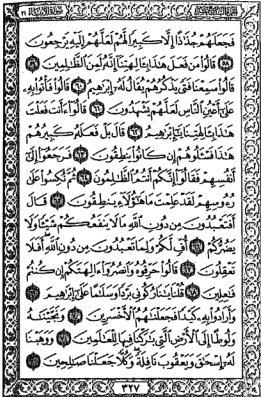 فَجَعَلَهُمْ جُذَاذًا إِلَّا كَبِيرًا لَّهُمْ لَعَلَّهُمْ إِلَيْهِ يَرْجِعُونَ
٥٨ قَالُوا مَن فَعَلَ هَٰذَا بِآلِهَتِنَا إِنَّهُ لَمِنَ الظَّالِمِينَ ٥٩
قَالُوا سَمِعْنَا فَتًى يَذْكُرُهُمْ يُقَالُ لَهُ إِبْرَاهِيمُ ٦٠ قَالُوا فَأْتُوا بِهِ
عَلَىٰ أَعْيُنِ النَّاسِ لَعَلَّهُمْ يَشْهَدُونَ ٦١ قَالُوا أَأَنتَ فَعَلْتَ
هَٰذَا بِآلِهَتِنَا يَا إِبْرَاهِيمُ ٦٢ قَالَ بَلْ فَعَلَهُ كَبِيرُهُمْ
هَٰذَا فَاسْأَلُوهُمْ إِن كَانُوا يَنطِقُونَ ٦٣ فَرَجَعُوا إِلَىٰ
أَنفُسِهِمْ فَقَالُوا إِنَّكُمْ أَنتُمُ الظَّالِمُونَ ٦٤ ثُمَّ نُكِسُوا عَلَىٰ
رُءُوسِهِمْ لَقَدْ عَلِمْتَ مَا هَٰؤُلَاءِ يَنطِقُونَ ٦٥ قَالَ
أَفَتَعْبُدُونَ مِن دُونِ اللَّهِ مَا لَا يَنفَعُكُمْ شَيْئًا وَلَا
يَضُرُّكُمْ ٦٦ أُفٍّ لَّكُمْ وَلِمَا تَعْبُدُونَ مِن دُونِ اللَّهِ أَفَلَا
تَعْقِلُونَ ٦٧ قَالُوا حَرِّقُوهُ وَانصُرُوا آلِهَتَكُمْ إِن كُنتُمْ
فَاعِلِينَ ٦٨ قُلْنَا يَا نَارُ كُونِي بَرْدًا وَسَلَامًا عَلَىٰ إِبْرَاهِيمَ ٦٩
وَأَرَادُوا بِهِ كَيْدًا فَجَعَلْنَاهُمُ الْأَخْسَرِينَ ٧٠ وَنَجَّيْنَاهُ
وَلُوطًا إِلَى الْأَرْضِ الَّتِي بَارَكْنَا فِيهَا لِلْعَالَمِينَ ٧١ وَوَهَبْنَا
لَهُ إِسْحَاقَ وَيَعْقُوبَ نَافِلَةً وَكُلًّا جَعَلْنَا صَالِحِينَ ٧٢
٣٢٧